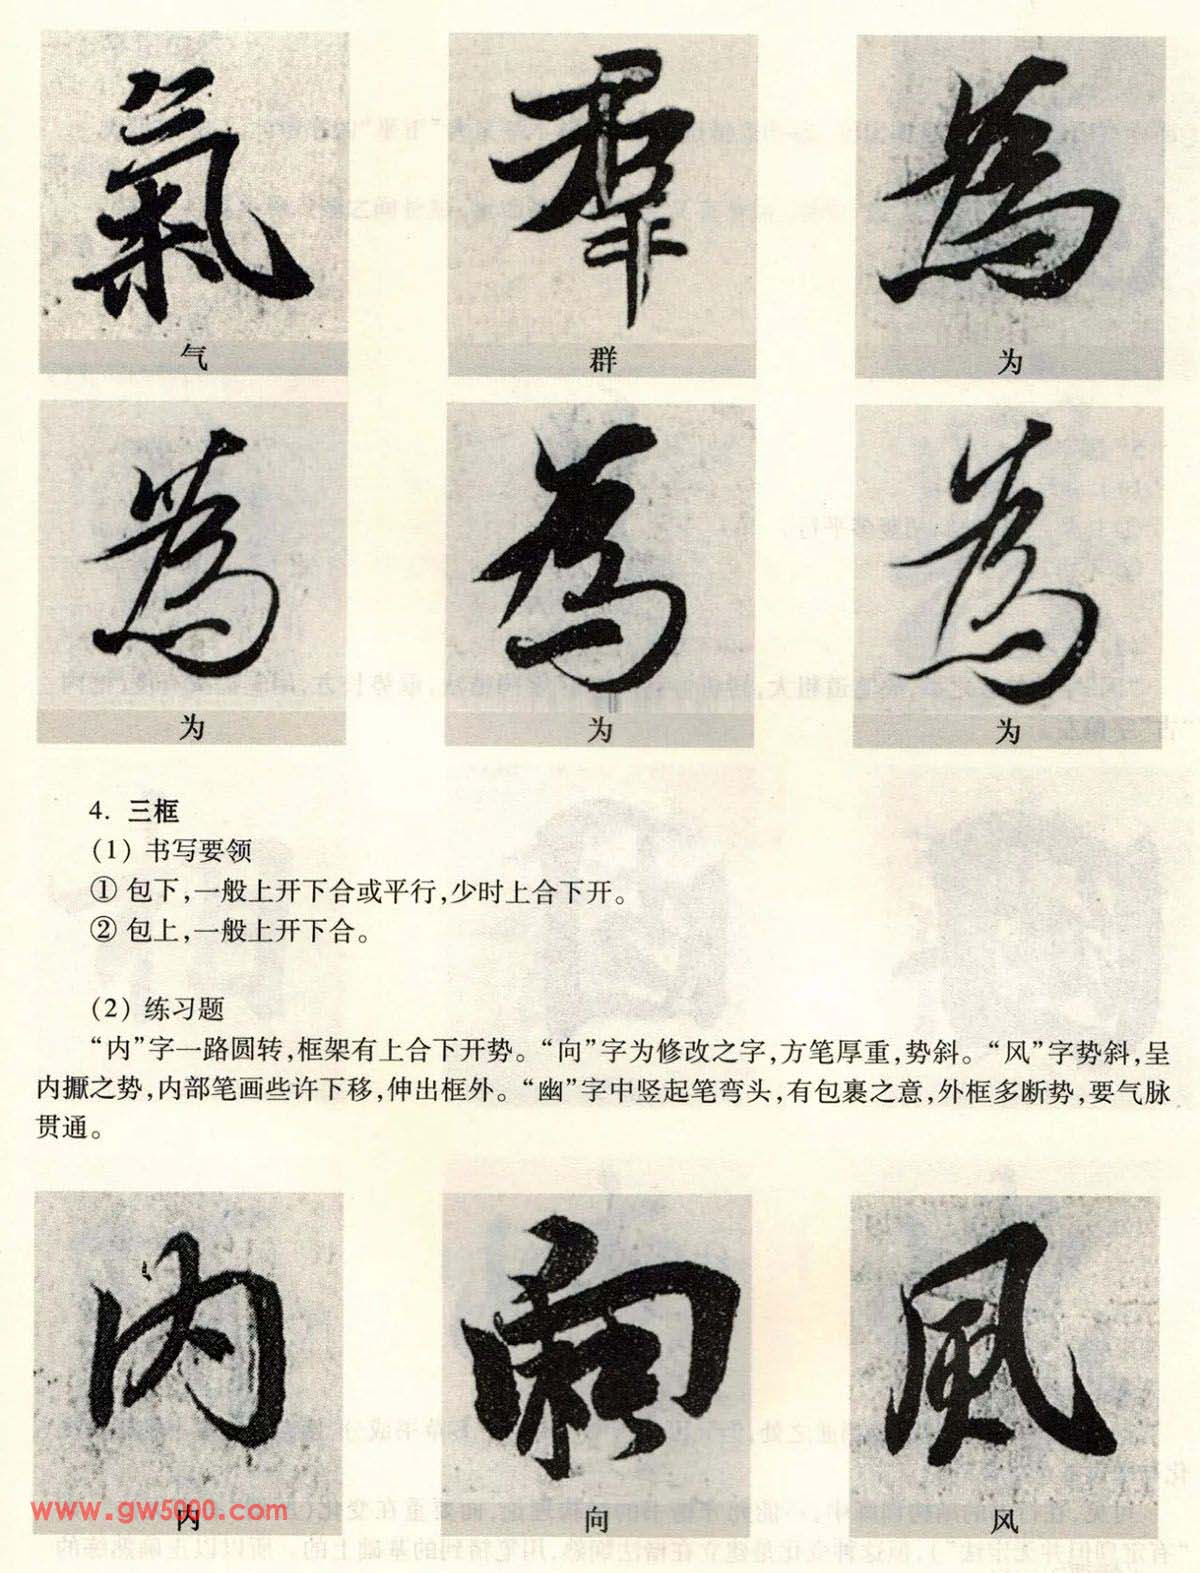 氣 羣 為
气 群 为
為 為 為
为 为 为
4. 三框
(1) 书写要领
① 包下,一般上开下合或平行,少时上合下开。
② 包上,一般上开下合。
(2) 练习题
“内”字一路圆转,框架有上合下开势。“向”字为修改之字,方笔厚重,势斜。“风”字势斜,呈
内擫之势,内部笔画些许下移,伸出框外。“幽”字中竖起笔弯头,有包裹之意,外框多断势,要气脉
贯通。
内 向 風
www.gw5000.com
内 向 风